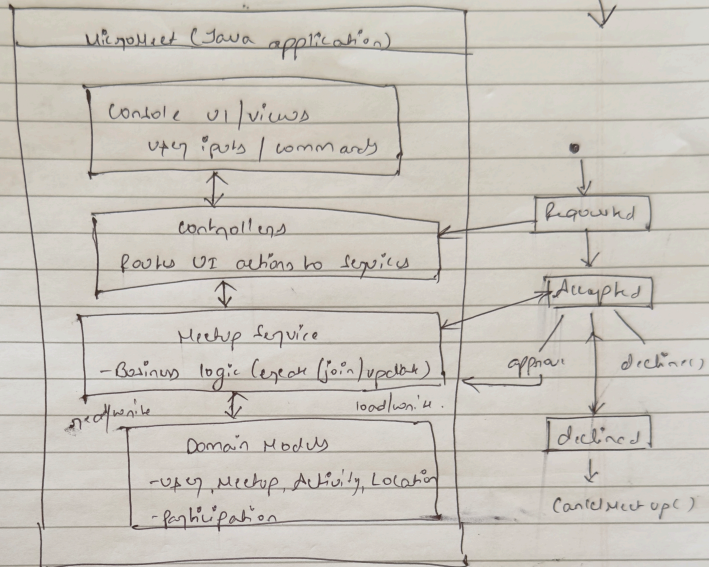 MicroMeet (Java application)
Console UI/views
user iputs / commands
Controllers
Routes UI actions to services
Meetup Service
- Business logic (create (join/update)
read/write
load/write.
Domain Models
- User, Meetup, Activity, Location
- Participation
Requested
Accepted
approve
decline()
declined
CancelMeetup()